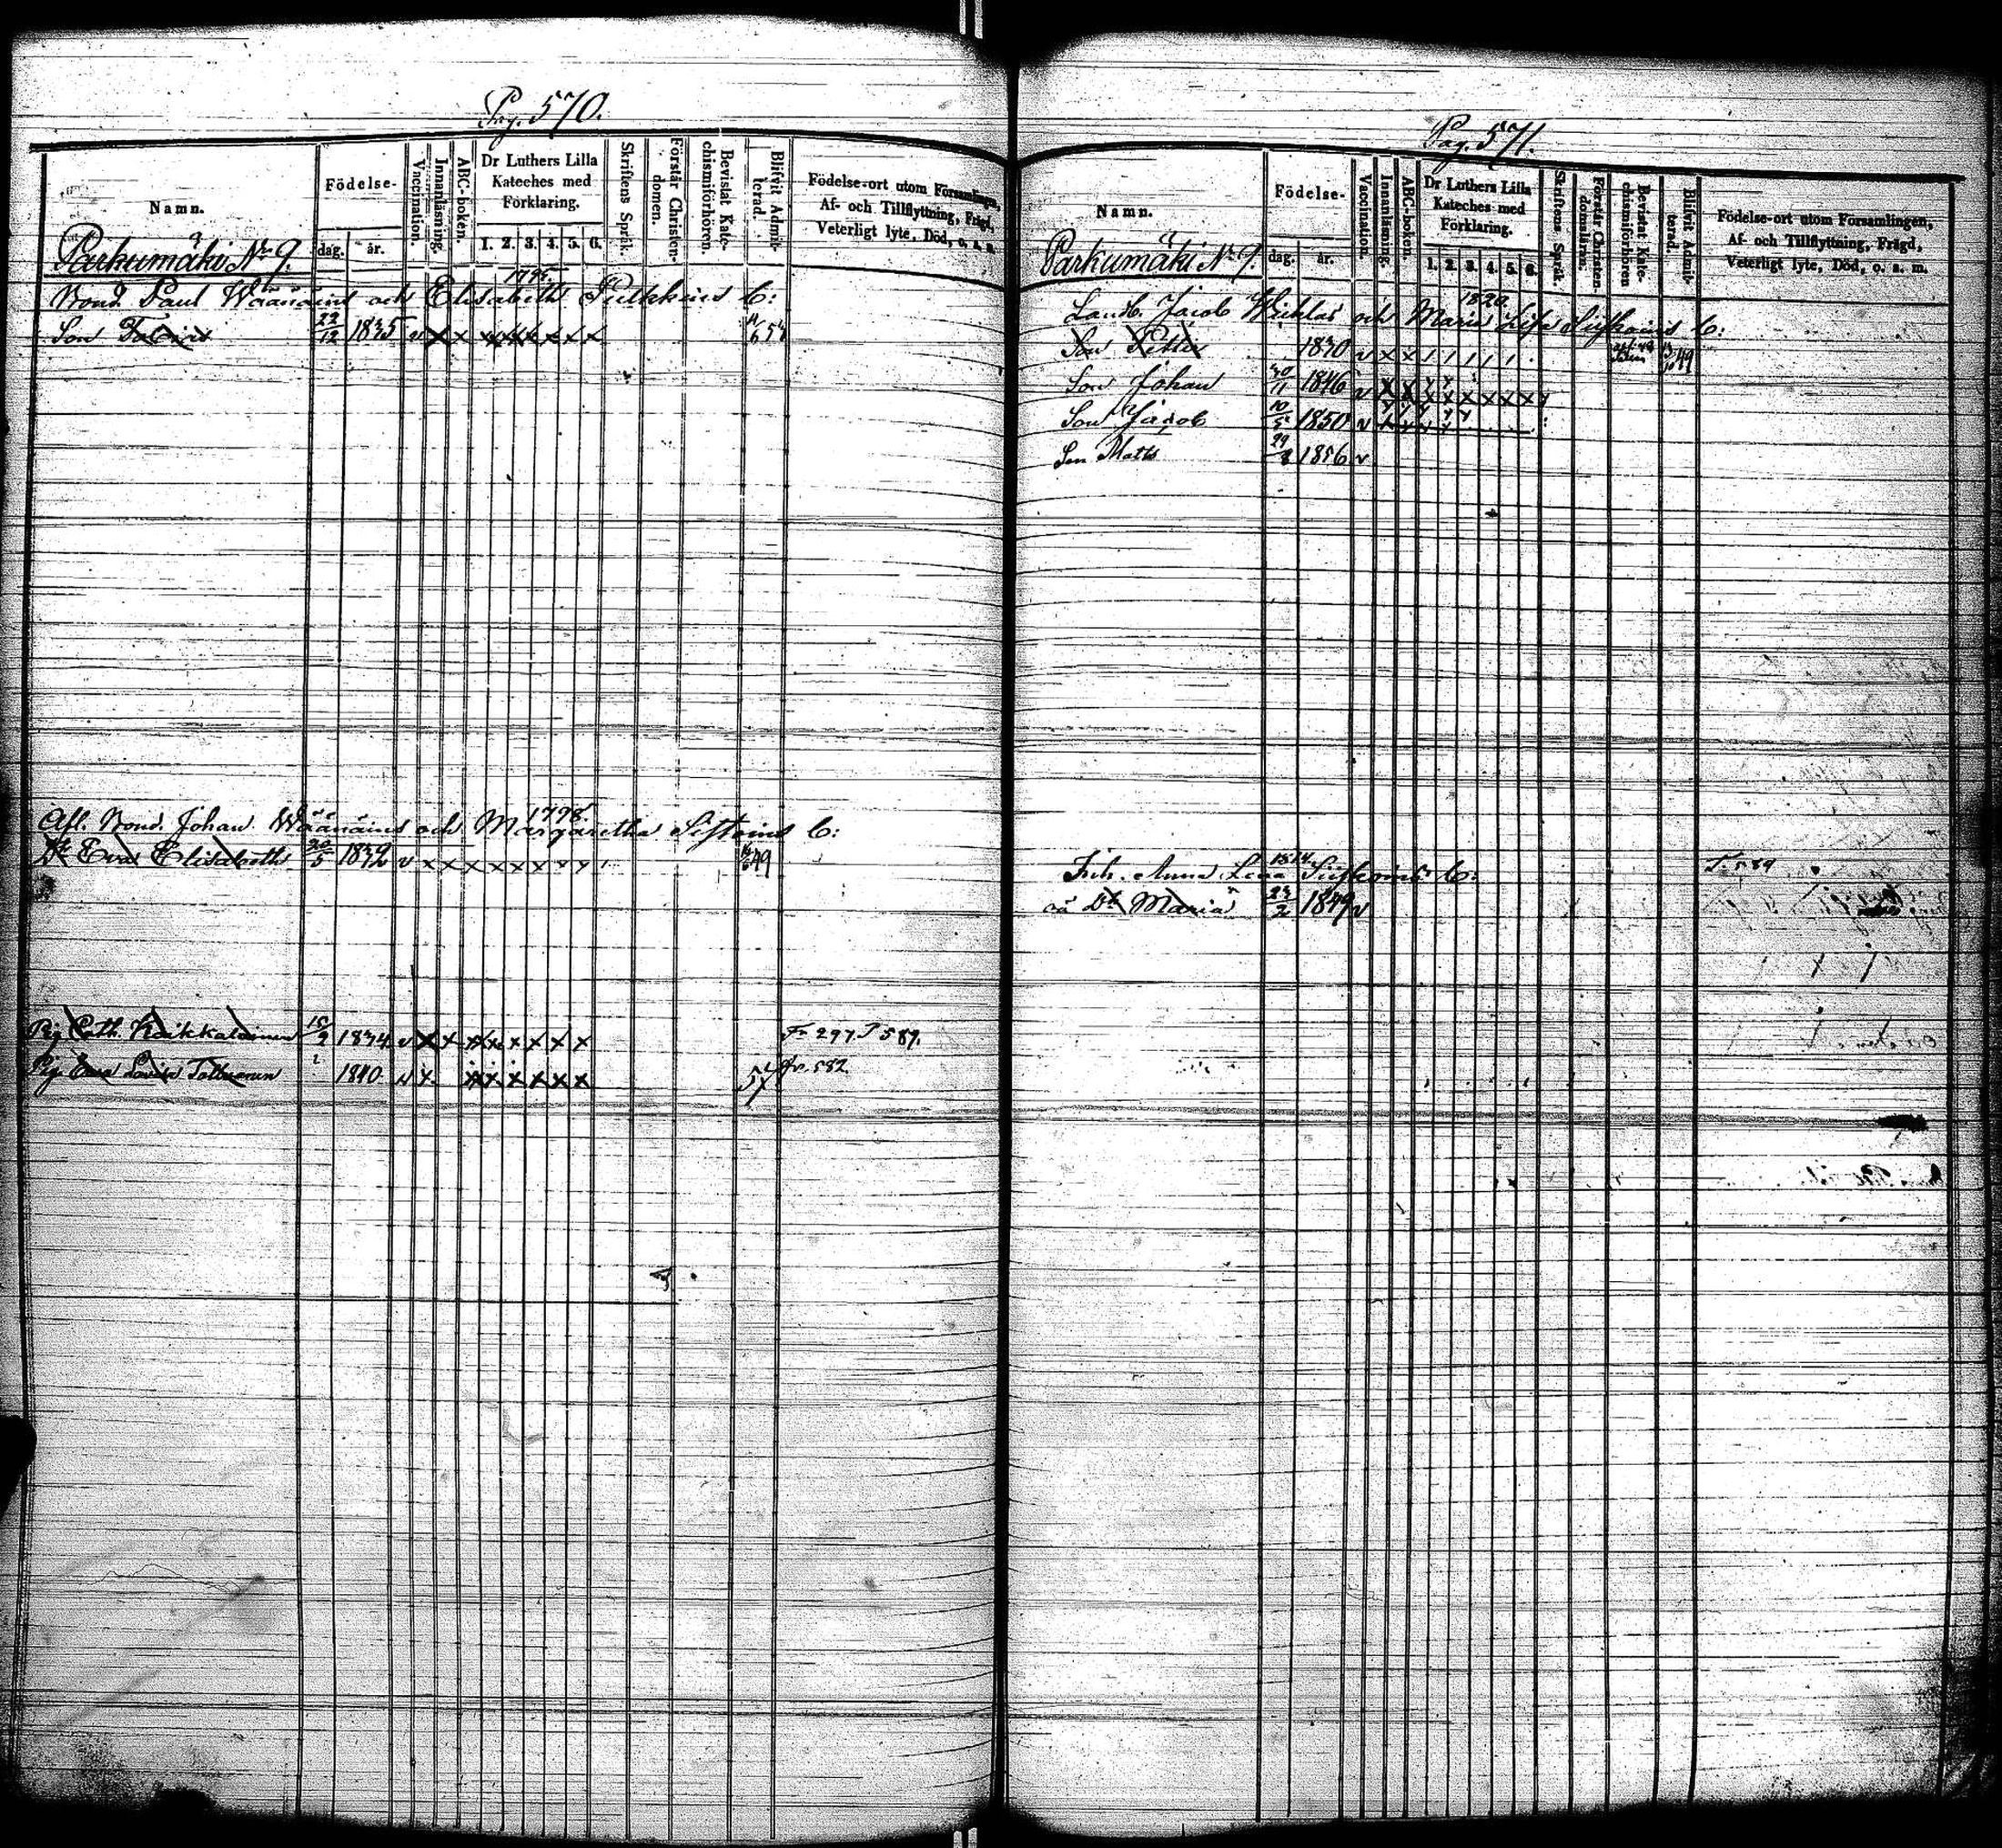 Pag. 570.
Namn.
Födelse-
dag. år.
Vaccination.
Innanläsning.
ABC-boken.
Dr Luthers Lilla
Kateches med
Förklaring.
1. 2. 3. 4. 5. 6.
Skriftens Språk.
Förstår Christen-
domen.
Bevistat Kate-
chismiförhören.
Blifvit Admit-
terad.
Födelse-ort utom Församlingen,
Af- och Tillflyttning, Frägd,
Veterligt lyte, Död, o. s. m.
Parkumäki No 9.
1795
Bond. Paul Wäänäins och Elisabeth Pulkkins b:
Son 22/12 1835 v x x x x x x x x
1798
Afl. Bond. Johan Wäänäins och Margaretha b:
Dt Eva Elisabeth 20/5 1832 v x x x x x x x x 49
Pig. Cath. 15/9 1834 v x x x x x x x x Fr 297. T 589.
Pig. Lovisa 1840. v x x x x x x x fr. 582.
Pag. 571.
Namn.
Födelse-
dag. år.
Vaccination.
Innanläsning.
ABC-boken.
Dr Luthers Lilla
Kateches med
Förklaring.
1. 2. 3. 4. 5. 6.
Skriftens Språk.
Förstår Christen-
domsläran.
Bevistat Kate-
chismiförhören
Blifvit Admit-
terad.
Födelse-ort utom Församlingen,
Af- och Tillflyttning, Frägd,
Veterligt lyte, Död, o. s. m.
Parkumäki No 9.
1820
Landb. Jacob och Maria Lisa b:
Son Petter 1830 v x x 49
Son Johan 30/11 1846 v x x x x x x x x
Son Jacob 10/5 1850 v
Son Matts 29/8 1856 v
1814
Inh. Anna Lena b: T. 589
oä Dt Maria 23/2 1849 v